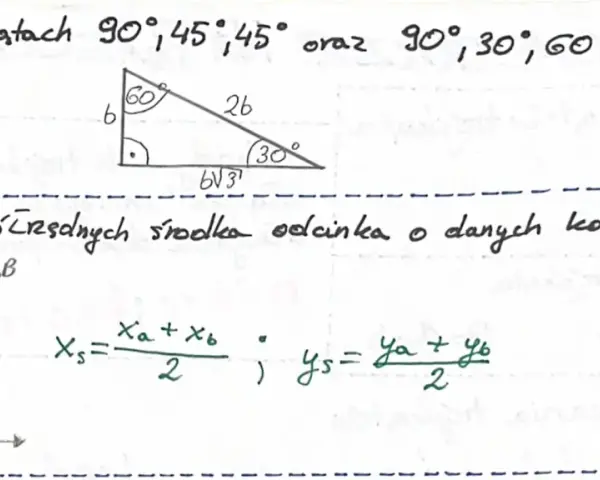 ątach 90°, 45°, 45° oraz 90°, 30°, 60
60°
b
2b
30°
b√3
współrzędnych środka odcinka o danych ko
B
x_s = (x_a + x_b)/2 ; y_s = (y_a + y_b)/2